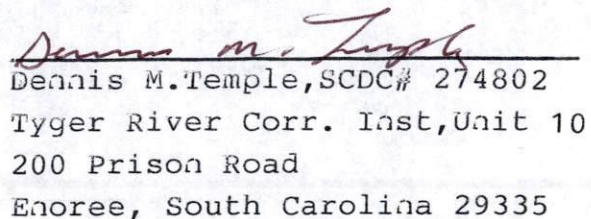 Dennis M. Temple
Dennis M.Temple,SCDC# 274802
Tyger River Corr. Inst,Unit 10
200 Prison Road
Enoree, South Carolina 29335